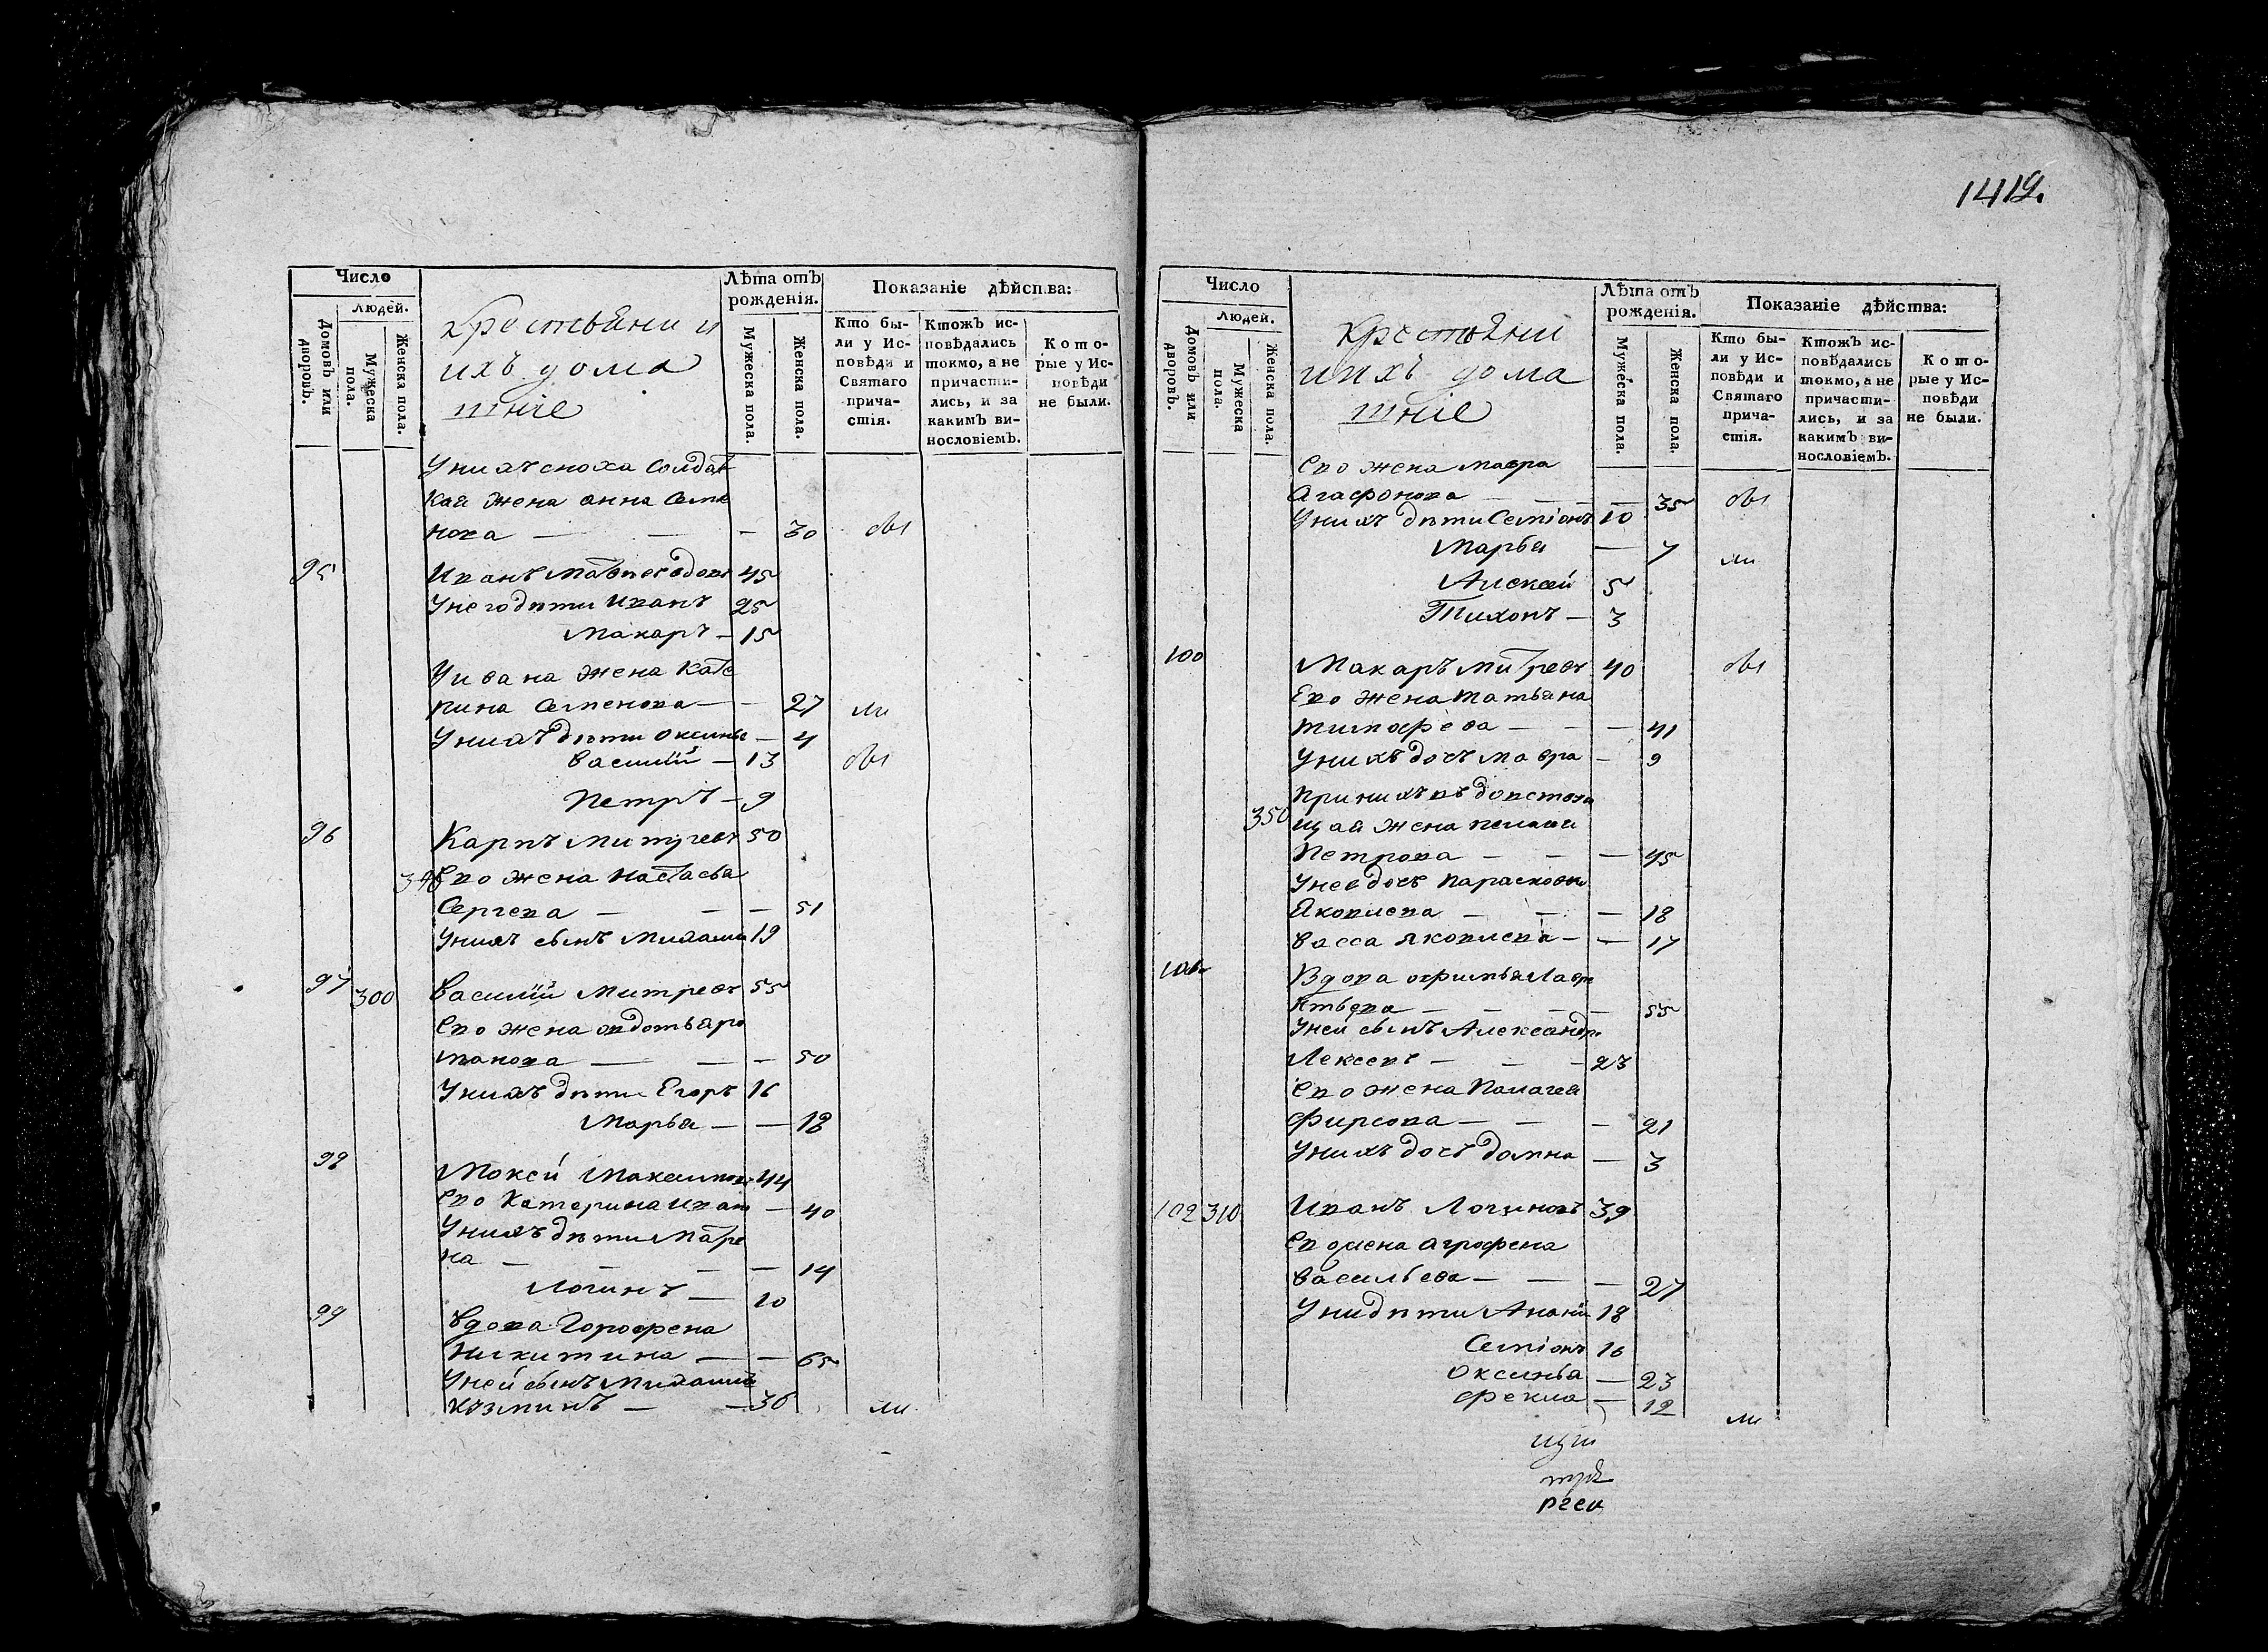 1419.
Число
Людей.
Домовъ или дворовъ.
Мужеска пола.
Женска пола.
Крестьяни и
ихъ дома
шніе
Лѣта отъ рожденія.
Мужеска пола.
Женска пола.
Показаніе дѣйства:
Кто бы-
ли у Ис-
повѣди и
Святаго
прича-
стія.
Ктожъ ис-
повѣдались
токмо, а не
причасти-
лись, и за
какимъ ви-
нословіемъ.
Кото-
рые у Ис-
повѣди
не были.
Унихъ сноха солдат
кая жена анна Семе
нова — — — 30 овы
95 Иванъ Матвѣевъ вдовъ 45
Унего дѣти Иванъ 25
Макаръ — 15
Уивана жена Кате
рина Семенова — — 27 ли
Унихъ дѣти Оксинья — 4
василій — 13 овы
Петръ — 9
96 Карпъ Митревъ 50
Ево жена Настасья
Сергева — — — 51
Унихъ сынъ Михаила 19
97 300 василій Митревъ 55
Ево жена овдотья ро
манова — — — 50
Унихъ дѣти Егоръ 16
Марья — — 18
98 Мокей Максимовъ 44
Ево Катерина Иван — 40
Унихъ дѣти Матре
на — — — — 14
Логинъ — 10
99 Вдова Горофена
никитина — — 65
Уней сынъ Михаила
кузминъ — — 36 ли
Число
Людей.
Домовъ или дворовъ.
Мужеска пола.
Женска пола.
Крестьяни
иихъ дома
шніе
Лѣта отъ рожденія.
Мужеска пола.
Женска пола.
Показаніе дѣйства:
Кто бы-
ли у Ис-
повѣди и
Святаго
прича-
стія.
Ктожъ ис-
повѣдались
токмо, а не
причасти-
лись, и за
какимъ ви-
нословіемъ.
Кото-
рые у Ис-
повѣди
не были.
Ево жена мавра
Агафонова — — — 35 овы
Унихъ дѣти Семіонъ 10
Марья — 7 ли
Алексей 5
Тихонъ — 3
100 Макаръ Митревъ 40 овы
Ево жена татьяна
тимофева — — — 41
Унихъ дочь мавра — 9
при нихъ въ
350 щая жена
Петрова — — — 45
Унее дочь Парасковья
Яковлева — — — 18
васса яковлева — — 17
101 Вдова офимья Лавре
нтьева — — — — 55
Уней сынъ Александръ
Лексевъ — — — 23
Ево жена Палагея
Фирсова — — — 21
Унихъ дочь домна — 3
102 310 Иванъ Логиновъ 39
Ево жена агрофена
васильева — — — 27
Уни дѣти Ананіи 18
Семіонъ 16
Оксинья — 23
фекла — 12 ли